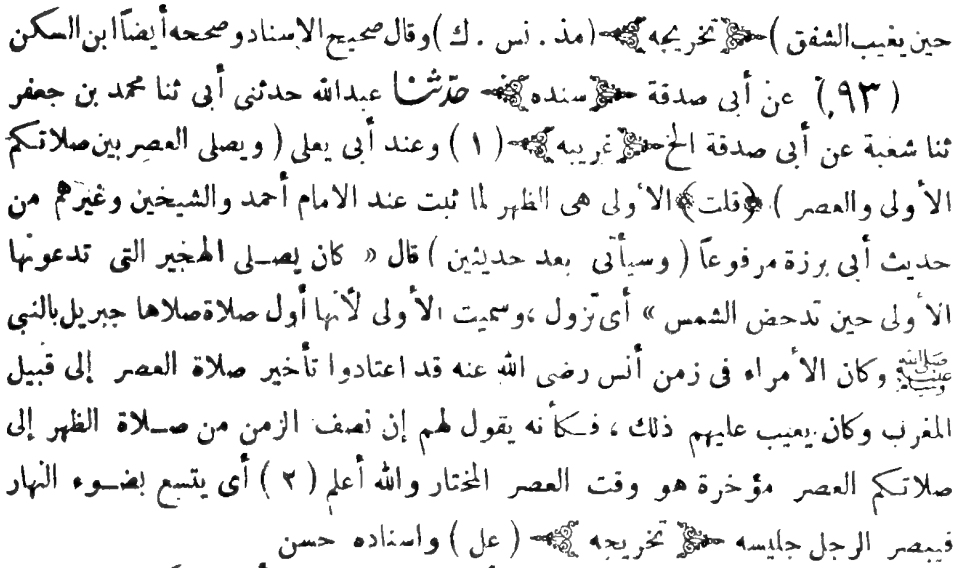 حين يغيب الشفق ) ﴿ تخريجه ﴾ (مذ . نس . ك ) وقال صحيح الاسناد وصححه أيضاً ابن السكن
(٩٣) عن أبى صدقة ﴿ سنده ﴾ حدثنا عبدالله حدثنى أبى ثنا محمد بن جعفر
ثنا شعبة عن أبى صدقة الخ ﴿ غريبه ﴾ ( ١ ) وعند أبى يعلى ( ويصلى العصر بين صلاتكم
الأولى والعصر ) ﴿ قلت ﴾ الأولى هى الظهر لما ثبت عند الامام أحمد والشيخين وغيرهم من
حديث أبى برزة مرفوعاً ( وسيأتى بعد حديثين ) قال « كان يصلى الهجير التى تدعونها
الأولى حين تدحض الشمس » أى تزول ،وسميت الأولى لأنها أول صلاة صلاها جبريل بالنبى
ﷺ وكان الأمراء فى زمن أنس رضى الله عنه قد اعتادوا تأخير صلاة العصر إلى قبيل
المغرب وكان يعيب عليهم ذلك ، فكأنه يقول لهم إن نصف الزمن من صلاة الظهر إلى
صلاتكم العصر مؤخرة هو وقت العصر المختار والله أعلم ( ٢ ) أى يتسع بضوء النهار
فيبصر الرجل جليسه ﴿ تخريجه ﴾ ( عل ) واسناده حسن